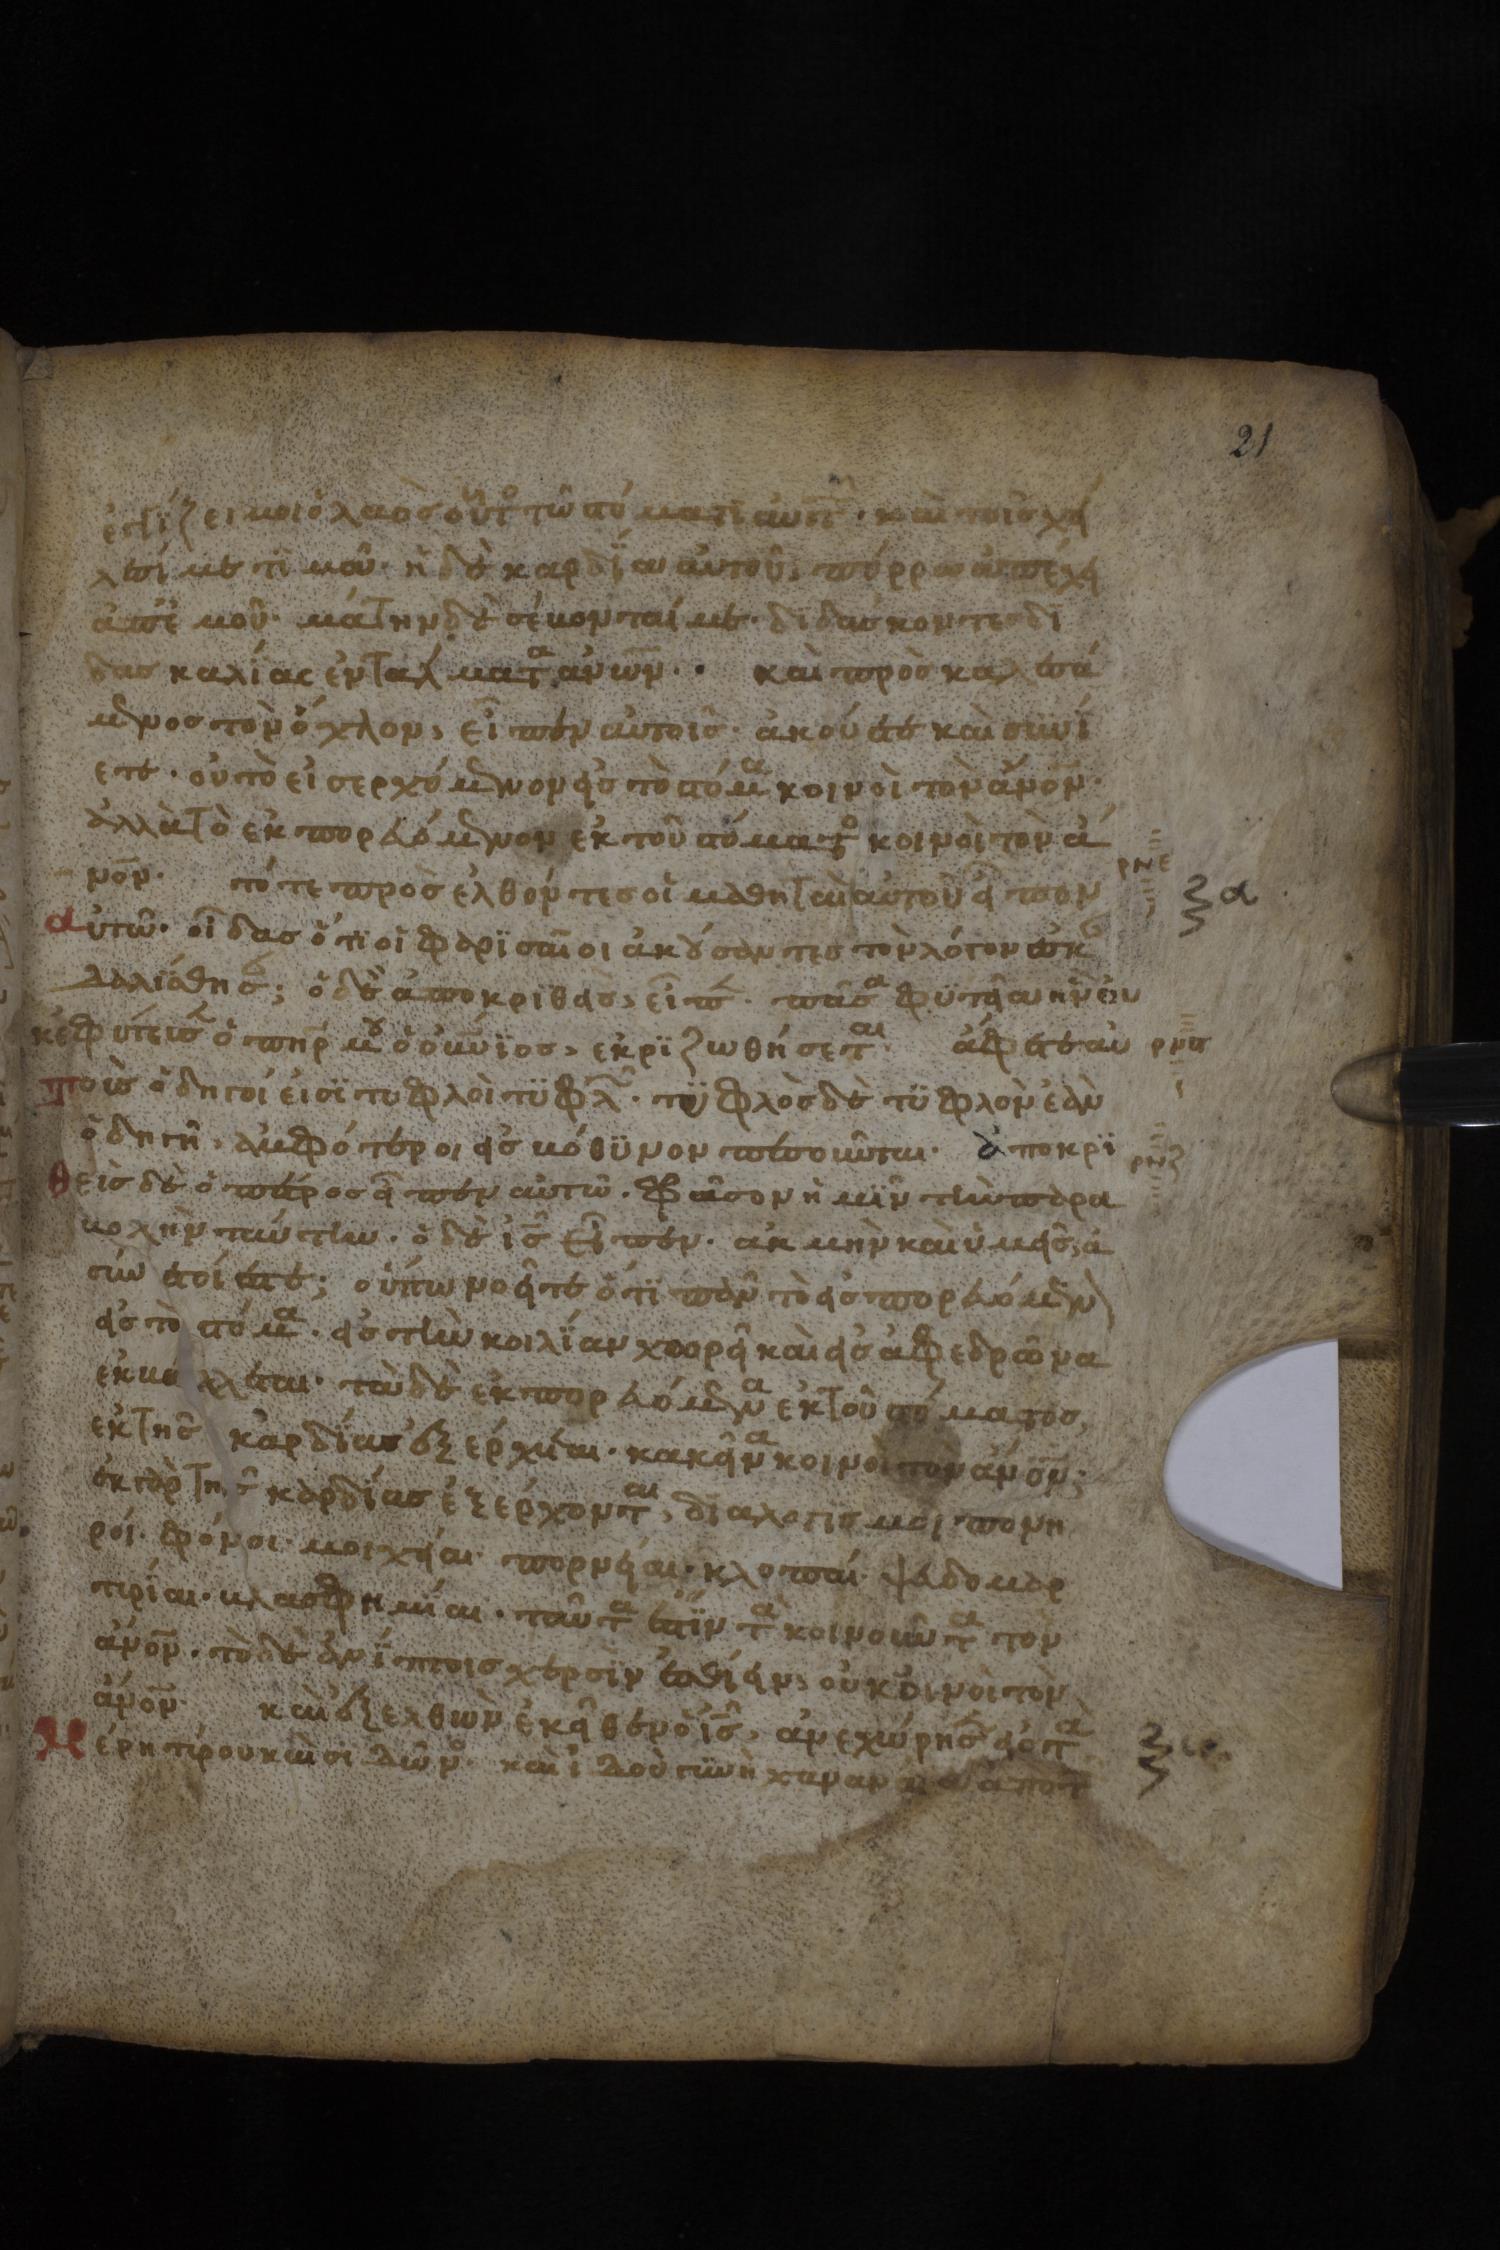 21
ἐγγίζει μοι ὁ λαὸς οὗτος τῷ στόματι αὐτῶν· καὶ τοῖς χεί
λεσί με τιμᾷ· ἡ δὲ καρδία αὐτοῦ, πόρρω ἀπέχει
ἀπ' ἐμοῦ· μάτην δὲ σέβονταί με· διδάσκοντες δι
δασκαλίας ἐντάλματα ἀνων·· καὶ προσκαλεσά
μενος τὸν ὄχλον, εἶπεν αὐτοῖς· ἀκούετε καὶ συνί
ετε· οὐ τὸ εἰσερχόμενον εἰς τὸ στόμα κοινοῖ τὸν ἄνον·
ἀλλὰ τὸ ἐκπορευόμενον ἐκ τοῦ στόματος κοινοῖ τὸν ἄ
νον· τότε προσελθόντες οἱ μαθηταὶ αὐτοῦ εἶπον
ρνε
α
αὐτῷ· οἶδας ὅτι οἱ φαρισαῖοι ἀκούσαντες τὸν λόγον ἐσκαν
δαλίσθησαν; ὁ δὲ ἀποκριθεὶς, εἶπεν· πᾶσα φυτεία ἣν οὐ
κ ἐφύτευσεν ὁ πηρ μου ὁ οὐνιος, ἐκριζωθήσεται· ἄφετε αὐ
ρνς
τοὺς ὁδηγοί εἰσι τυφλοὶ τυφλῶν· τυφλὸς δὲ τυφλὸν ἐὰν
ὁδηγῇ, ἀμφότεροι εἰς βόθυνον πεσοῦνται· ἀποκρι
ρνζ
θεὶς δὲ ὁ πέτρος εἶπεν αὐτῷ· φράσον ἡμῖν τὴν παρα
βολὴν ταύτην· ὁ δὲ ις εἶπεν· ἀκμὴν καὶ ὑμεῖς ἀ
σύνετοί ἐστε; οὔπω νοεῖτε ὅτι πᾶν τὸ εἰσπορευόμενον
εἰς τὸ στόμα· εἰς τὴν κοιλίαν χωρεῖ καὶ εἰς ἀφεδρῶνα
ἐκβάλλεται· τὰ δὲ ἐκπορευόμενα ἐκ τοῦ στόματος,
ἐκ τῆς καρδίας ἐξέρχεται· κακεῖνα κοινοῖ τὸν ἄνον·
ἐκ γὰρ τῆς καρδίας ἐξέρχονται, διαλογισμοὶ πονη
ροί· φόνοι· μοιχεῖαι· πορνεῖαι· κλοπαί· ψευδομαρ
τυρίαι· βλασφημίαι· ταῦτα ἐστὶν τὰ κοινοῦντα τὸν
ἄνον· τὸ δὲ ἀνίπτοις χερσὶν ἐσθίειν, οὐ κοινοῖ τὸν
ἄνον· καὶ ἐξελθὼν ἐκεῖθεν ὁ ις, ἀνεχώρησεν εἰς τὰ
μέρη τύρου καὶ σιδῶνος· καὶ ἰδοὺ γυνὴ χαναναία ἀπὸ τῶν